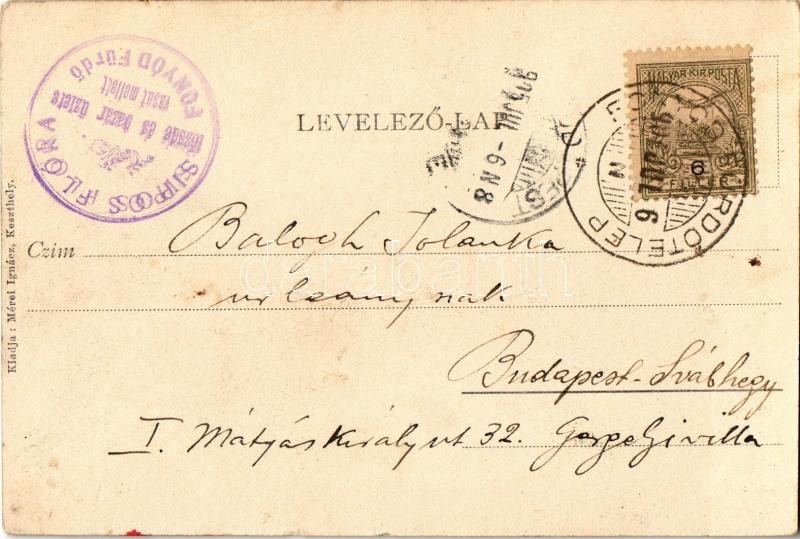 SIPOSS FLÓRA
tőzsde és bazár üzlete
vasut mellett
FONYÓD Fürdő
LEVELEZŐ-LAP
MAGYAR KIR. POSTA
6
FILLÉR
FÜRDŐTELEP
905 JUL -6 N 8
Czim
Balogh Jolánka
urleánynak
Budapest-Svábhegy
I. Mátyás Király ut 32. Gergelji villa
Kiadja : Mérei Ignácz, Keszthely.
darabanth